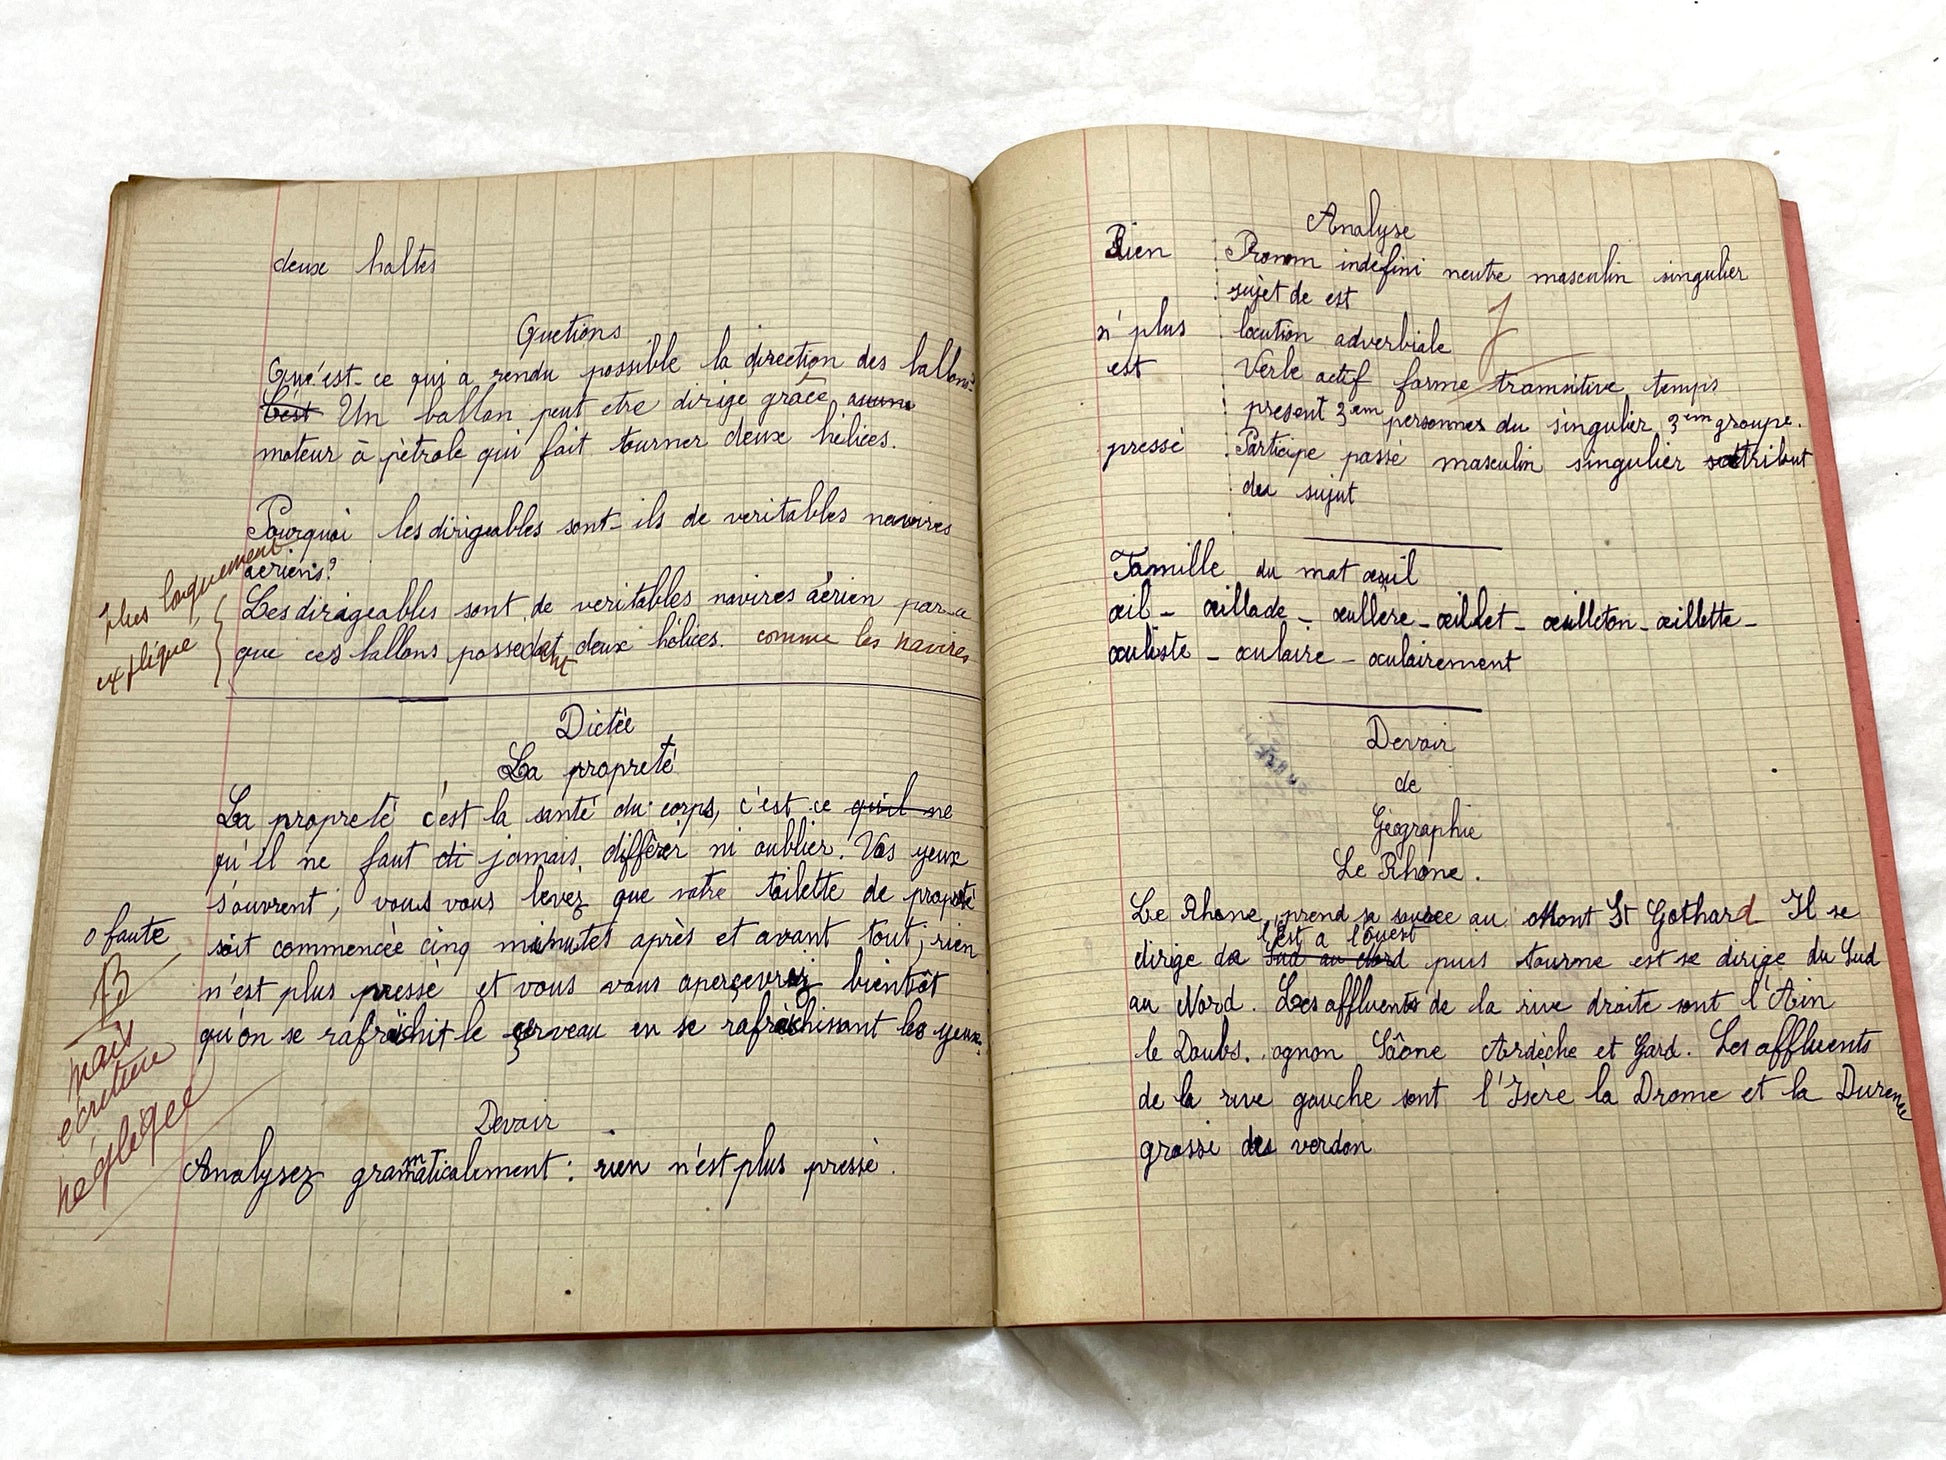 deux haltes
Quetions
Que'est-ce qui a rendu possible la direction des ballons?
C'est Un ballon peut etre dirigé grâce
moteur à pètrole qui fait tourner deux hélices.
Pourquoi les dirigeables sont-ils de veritables navires
aeriens?
Plus longuement
expliqué
Les dirigeables sont de veritables navires aérien parce
que ces ballons possedent deux hélices. comme les navires
Dictée
La propreté
La propreté c'est la santé du corps, c'est ce qu'il ne
qu'il ne faut di jamais différer ni oublier. Vos yeux
s'ouvrent; vous vous levez que votre toilette de propreté
soit commencée cinq minutes après et avant tout; rien
n'est plus pressé et vous vous apercevrez bientôt
qu'on se rafraîchit le cerveau en se rafraîchissant les yeux.
0 faute
B
mais
écriture
négligée
Devoir
Analysez grammaticalement: rien n'est plus pressé.
Analyse
Rien Pronom indéfini neutre masculin singulier
sujet de est
n' plus locution adverbiale
est Verbe actif forme transitive temps
present 3em personnes du singulier 3em groupe.
pressé Participe passé masculin singulier attribut
du sujet
Famille du mot œuil
œil - œillade - œullère - œillet - œuilleton - œillette -
oculiste - oculaire - oculairement
Devoir
de
Géographie
Le Rhone.
Le Rhone prend sa source au Mont St Gothard Il se
l'Est a l'ouest
dirige de Sud au Nord puis tourne est se dirige du Sud
au Nord. Les affluents de la rive droite sont l'Ain
le Doubs. ognon Saône Ardèche et Gard. Les affluents
de la rive gauche sont l'Isère la Drome et la Durence
grossi des verdon